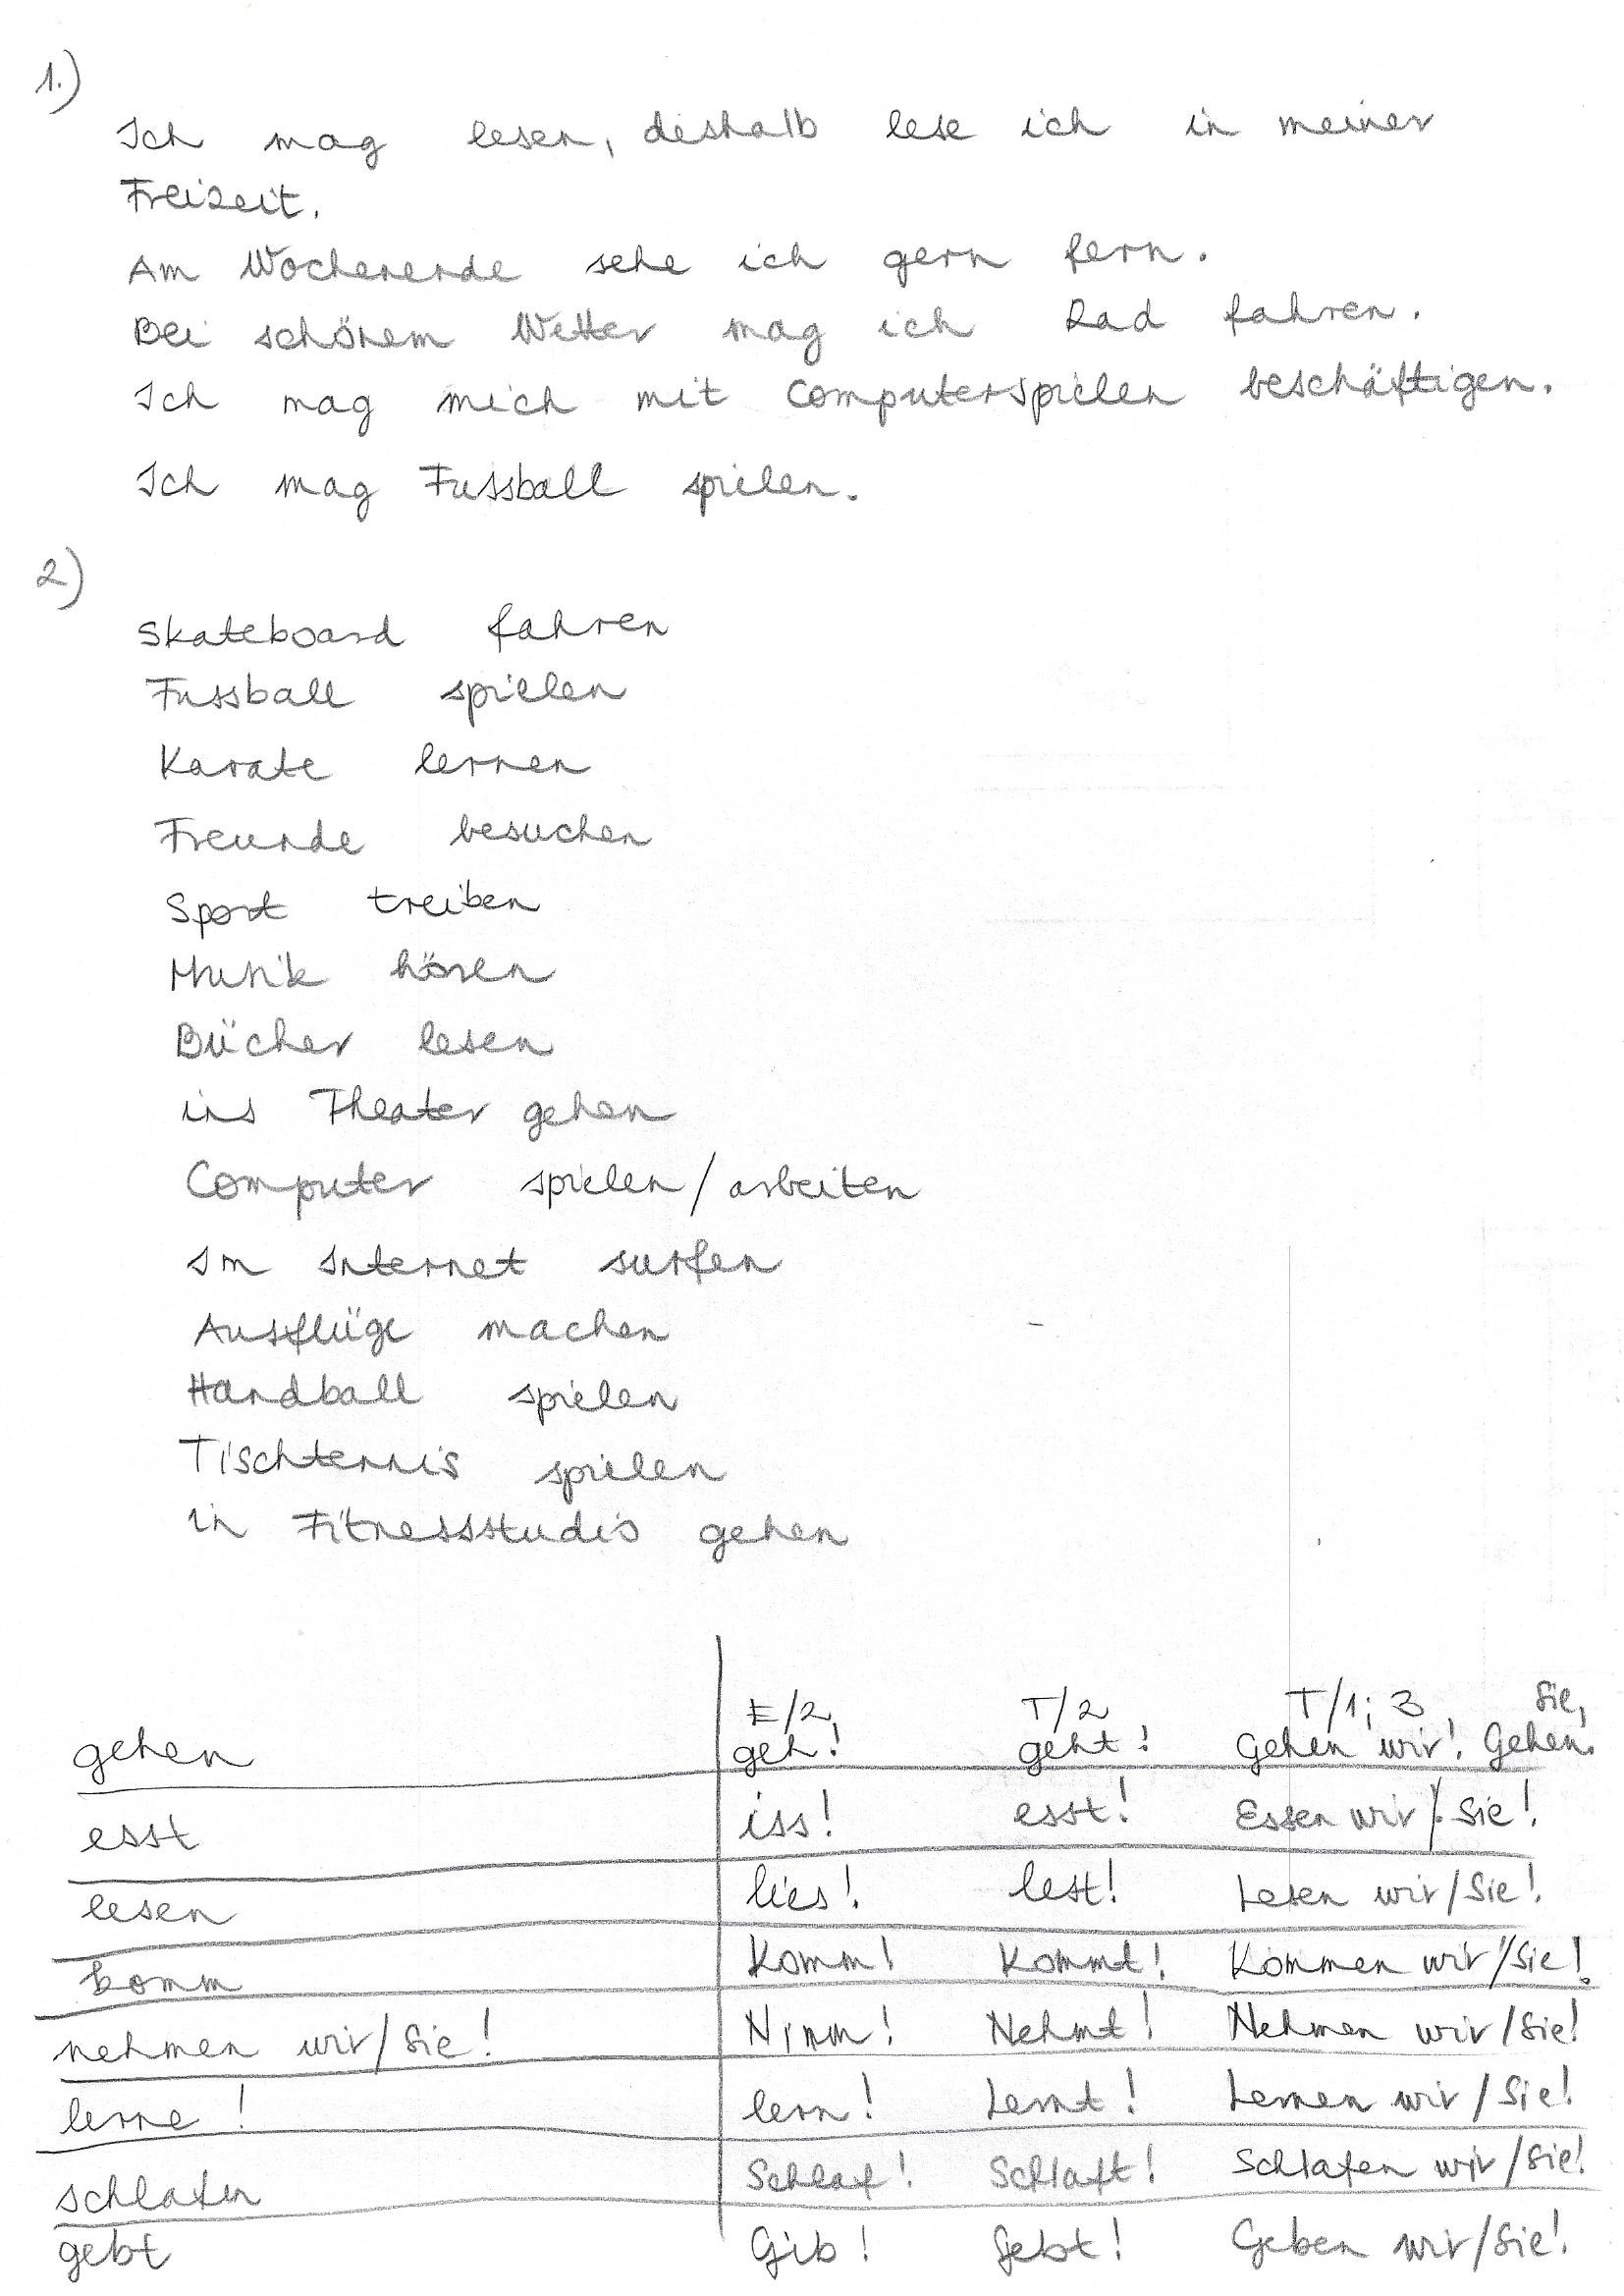 1.)
Ich mag lesen, deshalb lese ich in meiner
Freizeit.
Am Wochenende sehe ich gern fern.
Bei schönem Wetter mag ich Rad fahren.
Ich mag mich mit Computerspielen beschäftigen.
Ich mag Fussball spielen.
2)
Skateboard fahren
Fussball spielen
Karate lernen
Freunde besuchen
Sport treiben
Musik hören
Bücher lesen
ins Theater gehen
Computer spielen/arbeiten
Im Internet surfen
Ausflüge machen
Handball spielen
Tischtennis spielen
in Fitnessstudio gehen
E/2 T/2 T/1; 3 Sie,
gehen geh! geht! Gehen wir! Gehen.
esst iss! esst! Essen wir/Sie!
lesen lies! lest! Lesen wir/Sie!
komm Komm! Kommt! Kommen wir/Sie!
nehmen wir/Sie! Nimm! Nehmt! Nehmen wir/Sie!
lerne! lern! Lernt! Lernen wir/Sie!
schlafen Schlaf! Schlaft! Schlafen wir/Sie!
gebt Gib! Gebt! Geben wir/Sie!